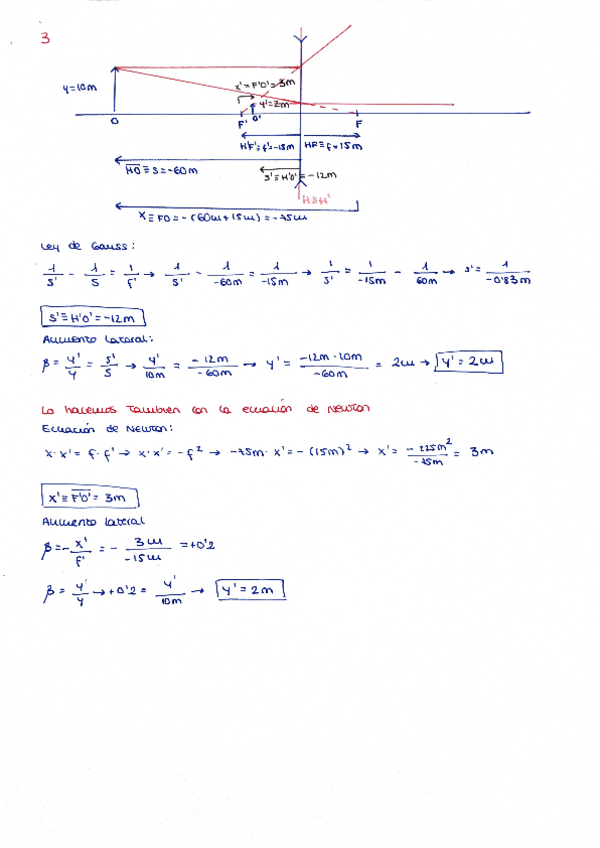 3
y=10m
x' ≡ F'O' = 3m
y'=2m
O
F'
O'
F
H'F'≡f'=-15m
HF≡f=15m
HO≡s=-60m
s'≡H'O'=-12m
H≡H'
x≡FO=-(60m+15m)=-75m
Ley de Gauss:
1/s' - 1/s = 1/f' → 1/s' - 1/-60m = 1/-15m → 1/s' = 1/-15m - 1/60m → s' = 1/-0'83m
s'≡H'O'=-12m
Aumento lateral:
β = y'/y = s'/s → y'/10m = -12m/-60m → y' = -12m·10m/-60m = 2m → y' = 2m
Lo hacemos también con la ecuación de Newton
Ecuación de Newton:
x·x' = f·f' → x·x' = -f² → -75m·x' = -(15m)² → x' = -225m²/-75m = 3m
x'≡F'O'=3m
Aumento lateral
β=-x'/f' = - 3m/-15m = +0'2
β = y'/y → +0'2 = y'/10m → y' = 2m